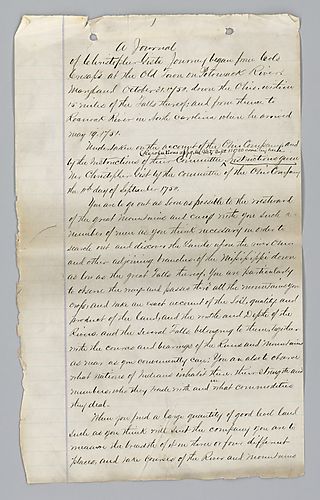 A Journal
of Christopher Gist's Journey began from Col.
Cresap's at the Old Town on Potomack River
Maryland October 31, 1750, down the Ohio, within
15 miles of the Falls thereof; and from thence to
Roanoak River in North Carolina where he arrived
May 19, 1751.
Undertaken on the account of the Ohio Company and
by the Instructions of their Committee Instructions given
Mr Christopher Gist by the Committee of the Ohio Company
the 11th day of September 1750.
You are to go out as soon as possible to the westward
of the great Mountains and carry with you such a
number of men as you think necessary in order to
search out and discover the Lands upon the river Ohio
and other adjoining branches of the Mississippi down
as low as the great Falls thereof; You are particularly
to observe the ways and passes thro all the mountains you
cross, and take an exact account of the Soil, quality and
product of the land, and the width and Depth of the
Rivers, and the Several Falls belonging to them, together
with the courses and bearings of the Rivers and Mountains
as near as you conveniently can: You are also to observe
what nations of Indians inhabit there, their strength and
numbers, who they trade with and in what commodities
they deal.
When you find a large quantity of good level land
such as you think will suit the company you are to
measure the breadth of it in three or four different
places, and take courses of the River and mountains